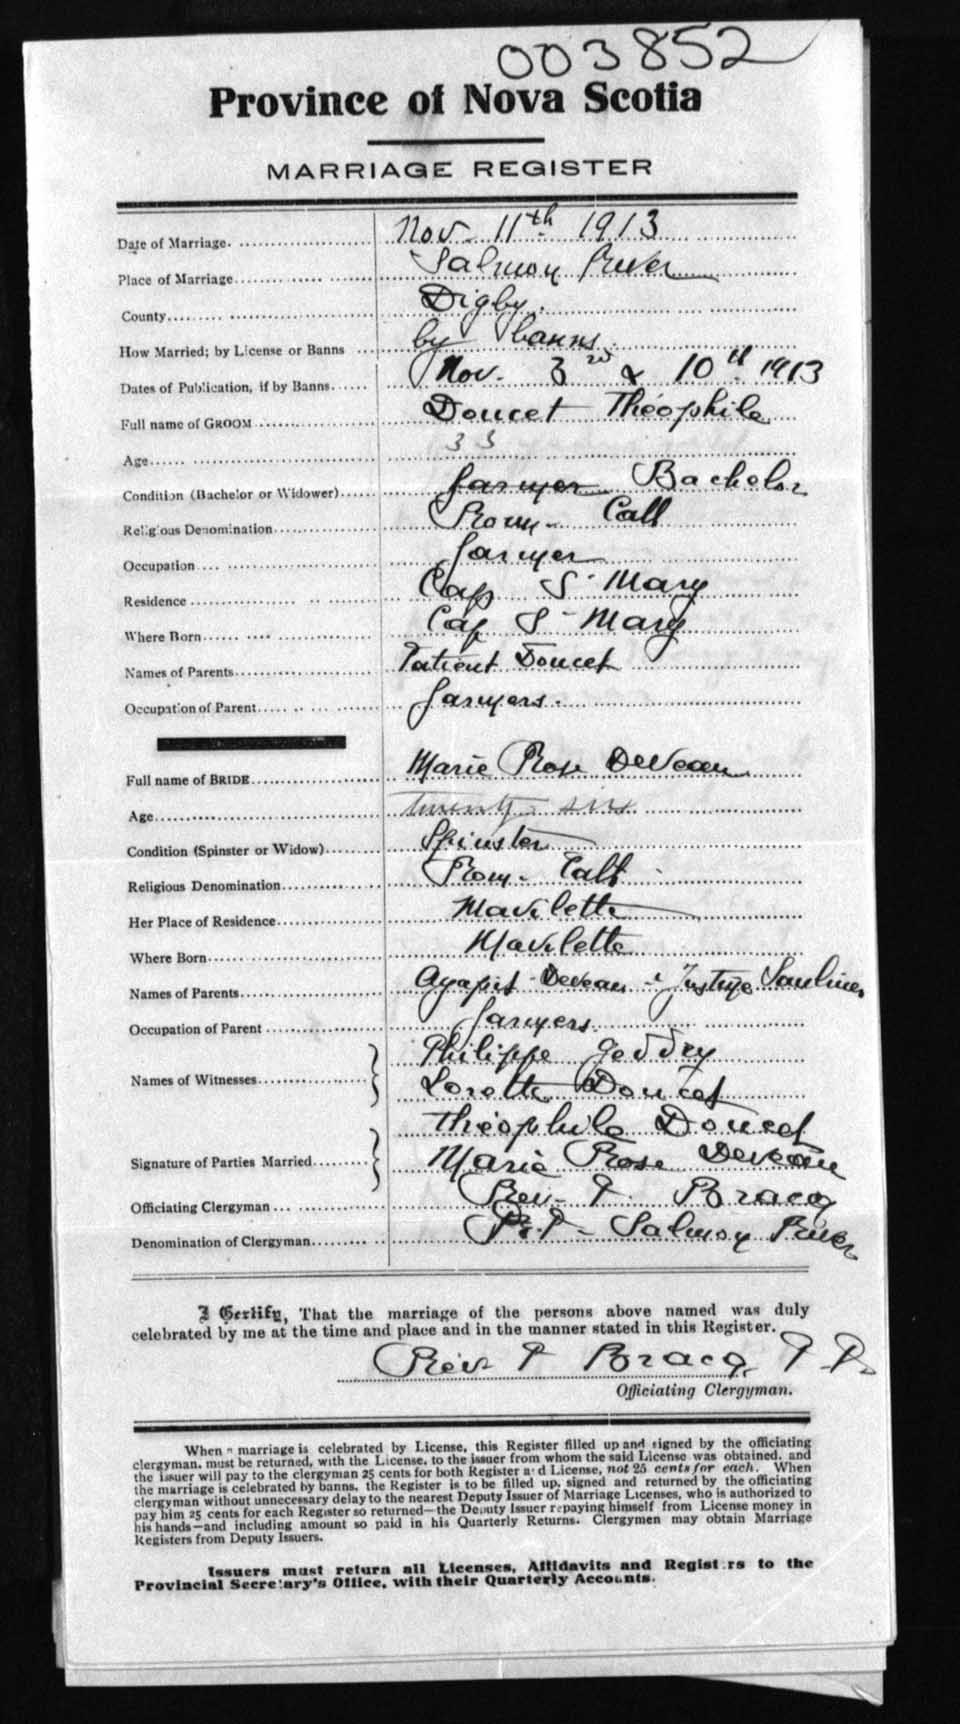 003852
Province of Nova Scotia
MARRIAGE REGISTER
Date of Marriage. Nov. 11th 1913
Place of Marriage Salmon River
County Digby.
How Married; by License or Banns by banns.
Dates of Publication, if by Banns Nov. 3rd & 10th 1913
Full name of GROOM Doucet Théophile
Age 33
Condition (Bachelor or Widower) farmer Bachelor
Religious Denomination Rom. Cath
Occupation farmer
Residence Cap S- Mary
Where Born Cap S- Mary
Names of Parents Patient Doucet
Occupation of Parent farmers.
Full name of BRIDE Marie Rose DeVeau
Age twenty six
Condition (Spinster or Widow) Spinster
Religious Denomination Rom. Cath
Her Place of Residence Mavilette
Where Born Mavilette
Names of Parents Agapit Deveau & Saulnier
Occupation of Parent farmers
Names of Witnesses Philippe Geddry
Lorette Doucet
Théophile Doucet
Signature of Parties Married Marie Rose Deveau
Officiating Clergyman Rev. P. Bracq
Denomination of Clergyman P.P- Salmon River
I Certify, That the marriage of the persons above named was duly
celebrated by me at the time and place and in the manner stated in this Register.
Rev P Bracq, P P.
Officiating Clergyman.
When a marriage is celebrated by License, this Register filled up and signed by the officiating
clergyman, must be returned, with the License, to the issuer from whom the said License was obtained, and
the issuer will pay to the clergyman 25 cents for both Register and License, not 25 cents for each. When
the marriage is celebrated by banns, the Register is to be filled up, signed and returned by the officiating
clergyman without unnecessary delay to the nearest Deputy Issuer of Marriage Licenses, who is authorized to
pay him 25 cents for each Register so returned—the Deputy Issuer repaying himself from License money in
his hands—and including amount so paid in his Quarterly Returns. Clergymen may obtain Marriage
Registers from Deputy Issuers.
Issuers must return all Licenses, Affidavits and Registers to the
Provincial Secretary's Office, with their Quarterly Accounts.